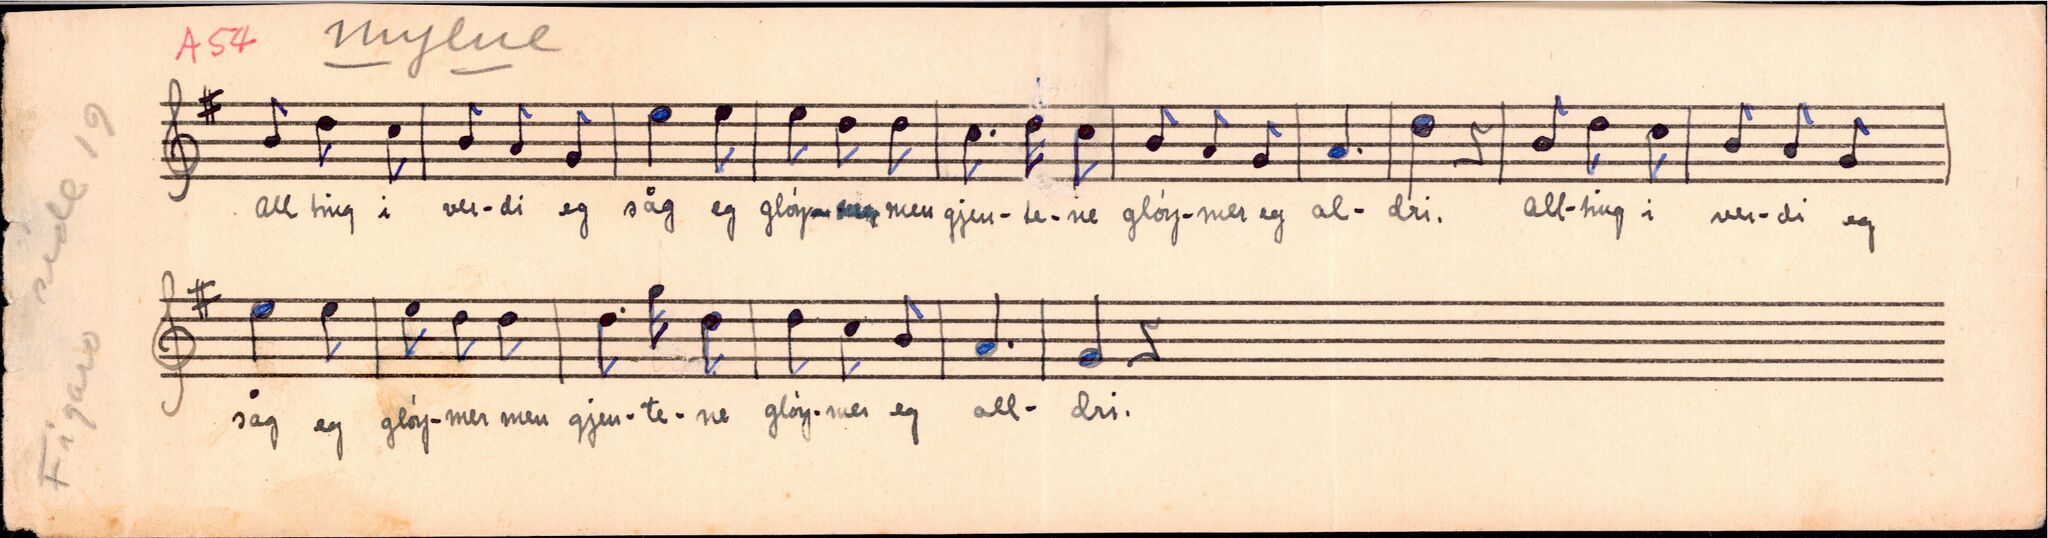 A54
All ting i ver-di eg såg eg gløy- men gjen-te-ne gløy-mer eg al-dri. All-ting i ver-di eg
såg eg gløy-mer men gjen-te-ne gløy-mer eg all-dri.
Figaro side 19